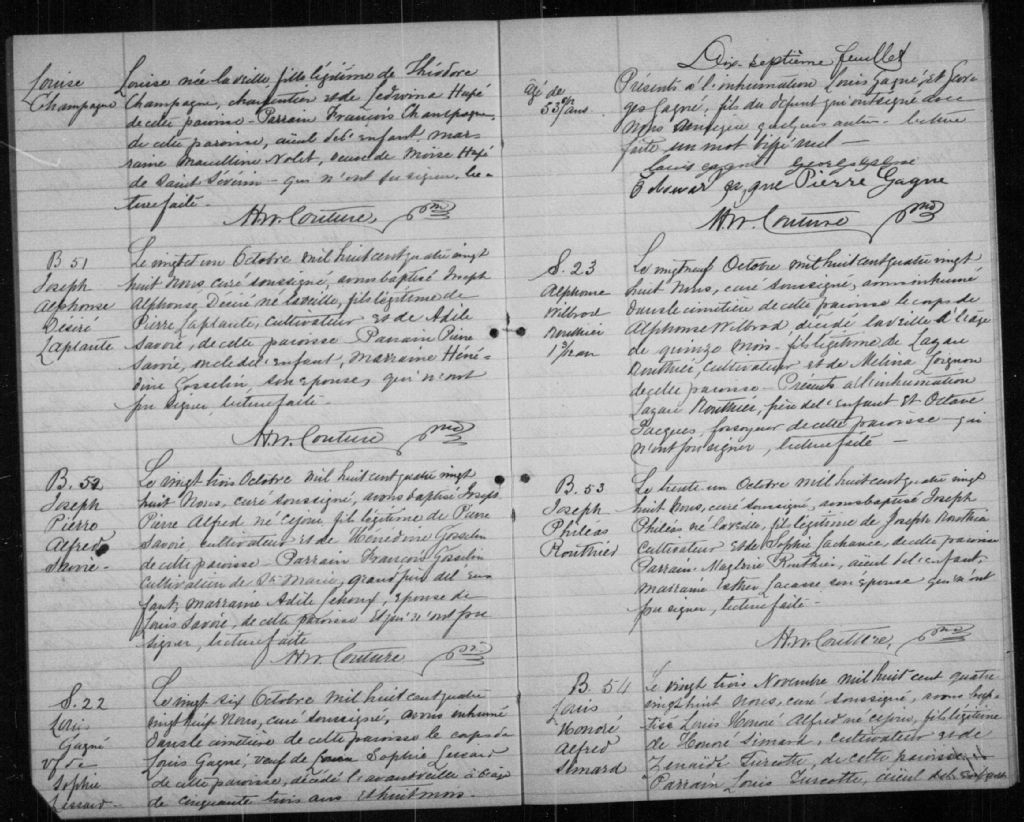 Louise
Champagne
Louise née la veille, fille légitime de Théodore
Champagne, charpentier et de Ledwina
de cette paroisse - Parrain François Champagne,
de cette paroisse, aïeul de l'enfant mar-
raine Marcelline Nolet, veuve de Moïse
de Saint Sévérin - qui n'ont su signer, lec-
ture faite -
H. W. Couture ptre
B 51
Joseph
Alphonse
Désiré
Laplante
Le vingt et un Octobre mil huit cent quatre vingt
huit Nous, curé soussigné, avons baptisé Joseph
Alphonse Désiré né la veille, fils légitime de
Pierre Laplante, cultivateur et de Adèle
Savoie, de cette paroisse Parrain Pierre
Savoie, oncle de l'enfant, Marraine Héné-
dine Gosselin, son épouse, qui n'ont
pu signer, lecture faite -
H. W. Couture ptre
B. 52
Joseph
Pierre
Alfred
Savoie -
Le vingt trois Octobre mil huit cent quatre vingt
huit Nous, curé soussigné, avons baptisé Joseph
Pierre Alfred né ce jour, fils légitime de Pierre
Savoie cultivateur et de Hénédine Gosselin
de cette paroisse - Parrain François Gosselin
Cultivateur de Ste Marie, grand père de l'en
fant, marraine Adèle épouse de
Louis Savoie, de cette paroisse et qui n'ont pu
signer, lecture faite
H. W. Couture ptre
S. 22
Louis
Gagné
vf de
Sophie
Lessard -
Le vingt six Octobre mil huit cent quatre
vingt huit Nous, curé soussigné, avons inhumé
dans le cimetière de cette paroisse le corps de
Louis Gagné, veuf de Sophie Lessard
de cette paroisse, décédé l'avant veille à l'âge
de cinquante trois ans et huit mois -
Dix septième feuillet
âgé de
53 8/12 ans
Présents à l'inhumation Louis Gagné et Geor-
ges Gagné, fils du défunt qui ont signé avec
Nous ainsi que quelques autres - lecture
faite un mot biffé nul -
Louis Gagné Georges Gagné
Edouard Gagné Pierre Gagné
H. W. Couture ptre
S. 23
Alphonse
Wilbrod
Routhier
1 3/12 an
Le vingt neuf Octobre mil huit cent quatre vingt
huit Nous, curé soussigné, avons inhumé
dans le cimetière de cette paroisse le corps de
Alphonse Wilbrod décédé la veille à l'âge
de quinze mois - fils légitime de Lazare
Routhier, cultivateur et de Mélina Loignon
de cette paroisse - Présents à l'inhumation
Lazare Routhier, père de l'enfant et Octave
Jacques, fossoyeur de cette paroisse qui
n'ont pu signer, lecture faite -
B. 53
Joseph
Philéas
Routhier
Le trente un Octobre mil huit cent quatre vingt
huit Nous, curé soussigné, avons baptisé Joseph
Philéas né la veille, fils légitime de Joseph Routhier
cultivateur et de Sophie Lachance, de cette paroisse
Parrain Magloire Routhier, aïeul de l'enfant,
marraine Esther Lacasse son épouse qui n'ont
pu signer, lecture faite -
H. W. Couture, ptre
B. 54
Louis
Honoré
Alfred
Simard
Le vingt trois Novembre mil huit cent quatre
vingt huit Nous, curé soussigné, avons bap-
tisé Louis Honoré Alfred né ce jour, fils légitime
de Honoré Simard, cultivateur et de
Zénaïde Turcotte, de cette paroisse
Parrain Louis Turcotte, aïeul de l'enfant